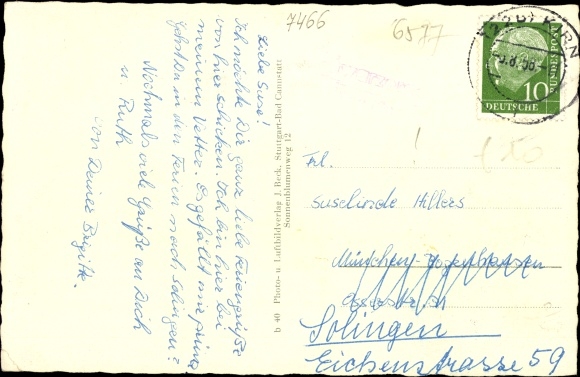 Liebe Suse!
Ich möchte Dir ganz liebe Feriengrüße
von hier schicken. Ich bin hier bei
meinem Vetter. Es gefällt mir prima
Gehst Du in den Ferien nach Solingen?
Nochmals viele Grüße an Dich
u. Ruth
von Deiner Brigitte.
b 40 Photo- u Luftbildverlag J. Beck, Stuttgart-Bad Cannstatt
Sonnenblumenweg 12
7466
6577
KIRN
10
DEUTSCHE
BUNDESPOST
Frl.
Suselinde Hillers
München-
Solingen
Eichenstrasse 59